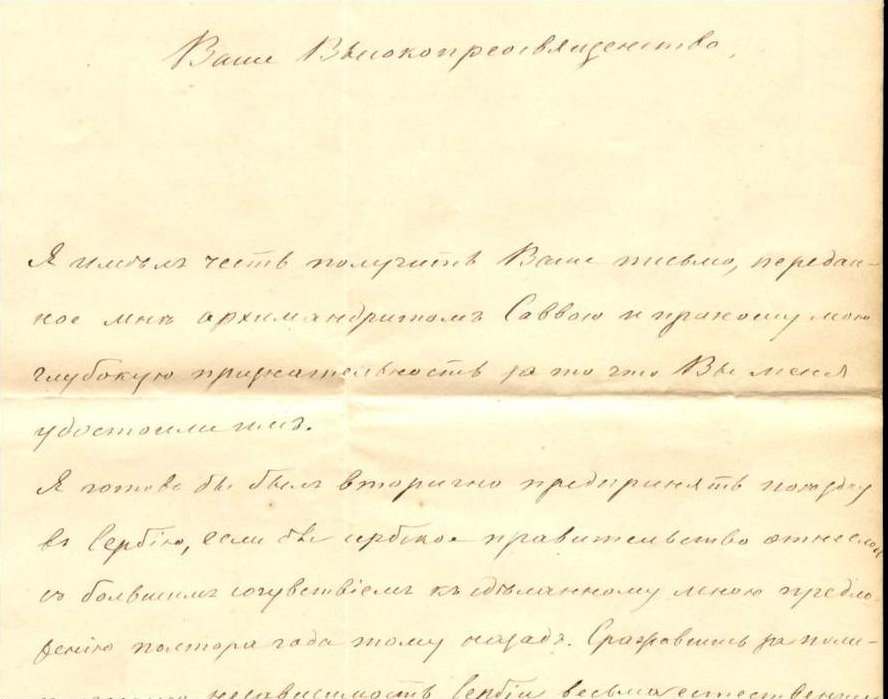 Ваше Высокопреосвященство,
Я имѣлъ честь получить Ваше письмо, передан-
ное мнѣ архимандритомъ Саввою и приношу мою
глубокую признательность за то что Вы меня
удостоили имъ.
Я готовъ бы былъ вторично предпринять поездку
въ Сербію, если бы сербское правительство отнеслось
съ большимъ сочувствіемъ къ сдѣланному мною предло-
женію полтора года тому назадъ. Сражавшись за поли-
независимость Сербіи весьма естественно